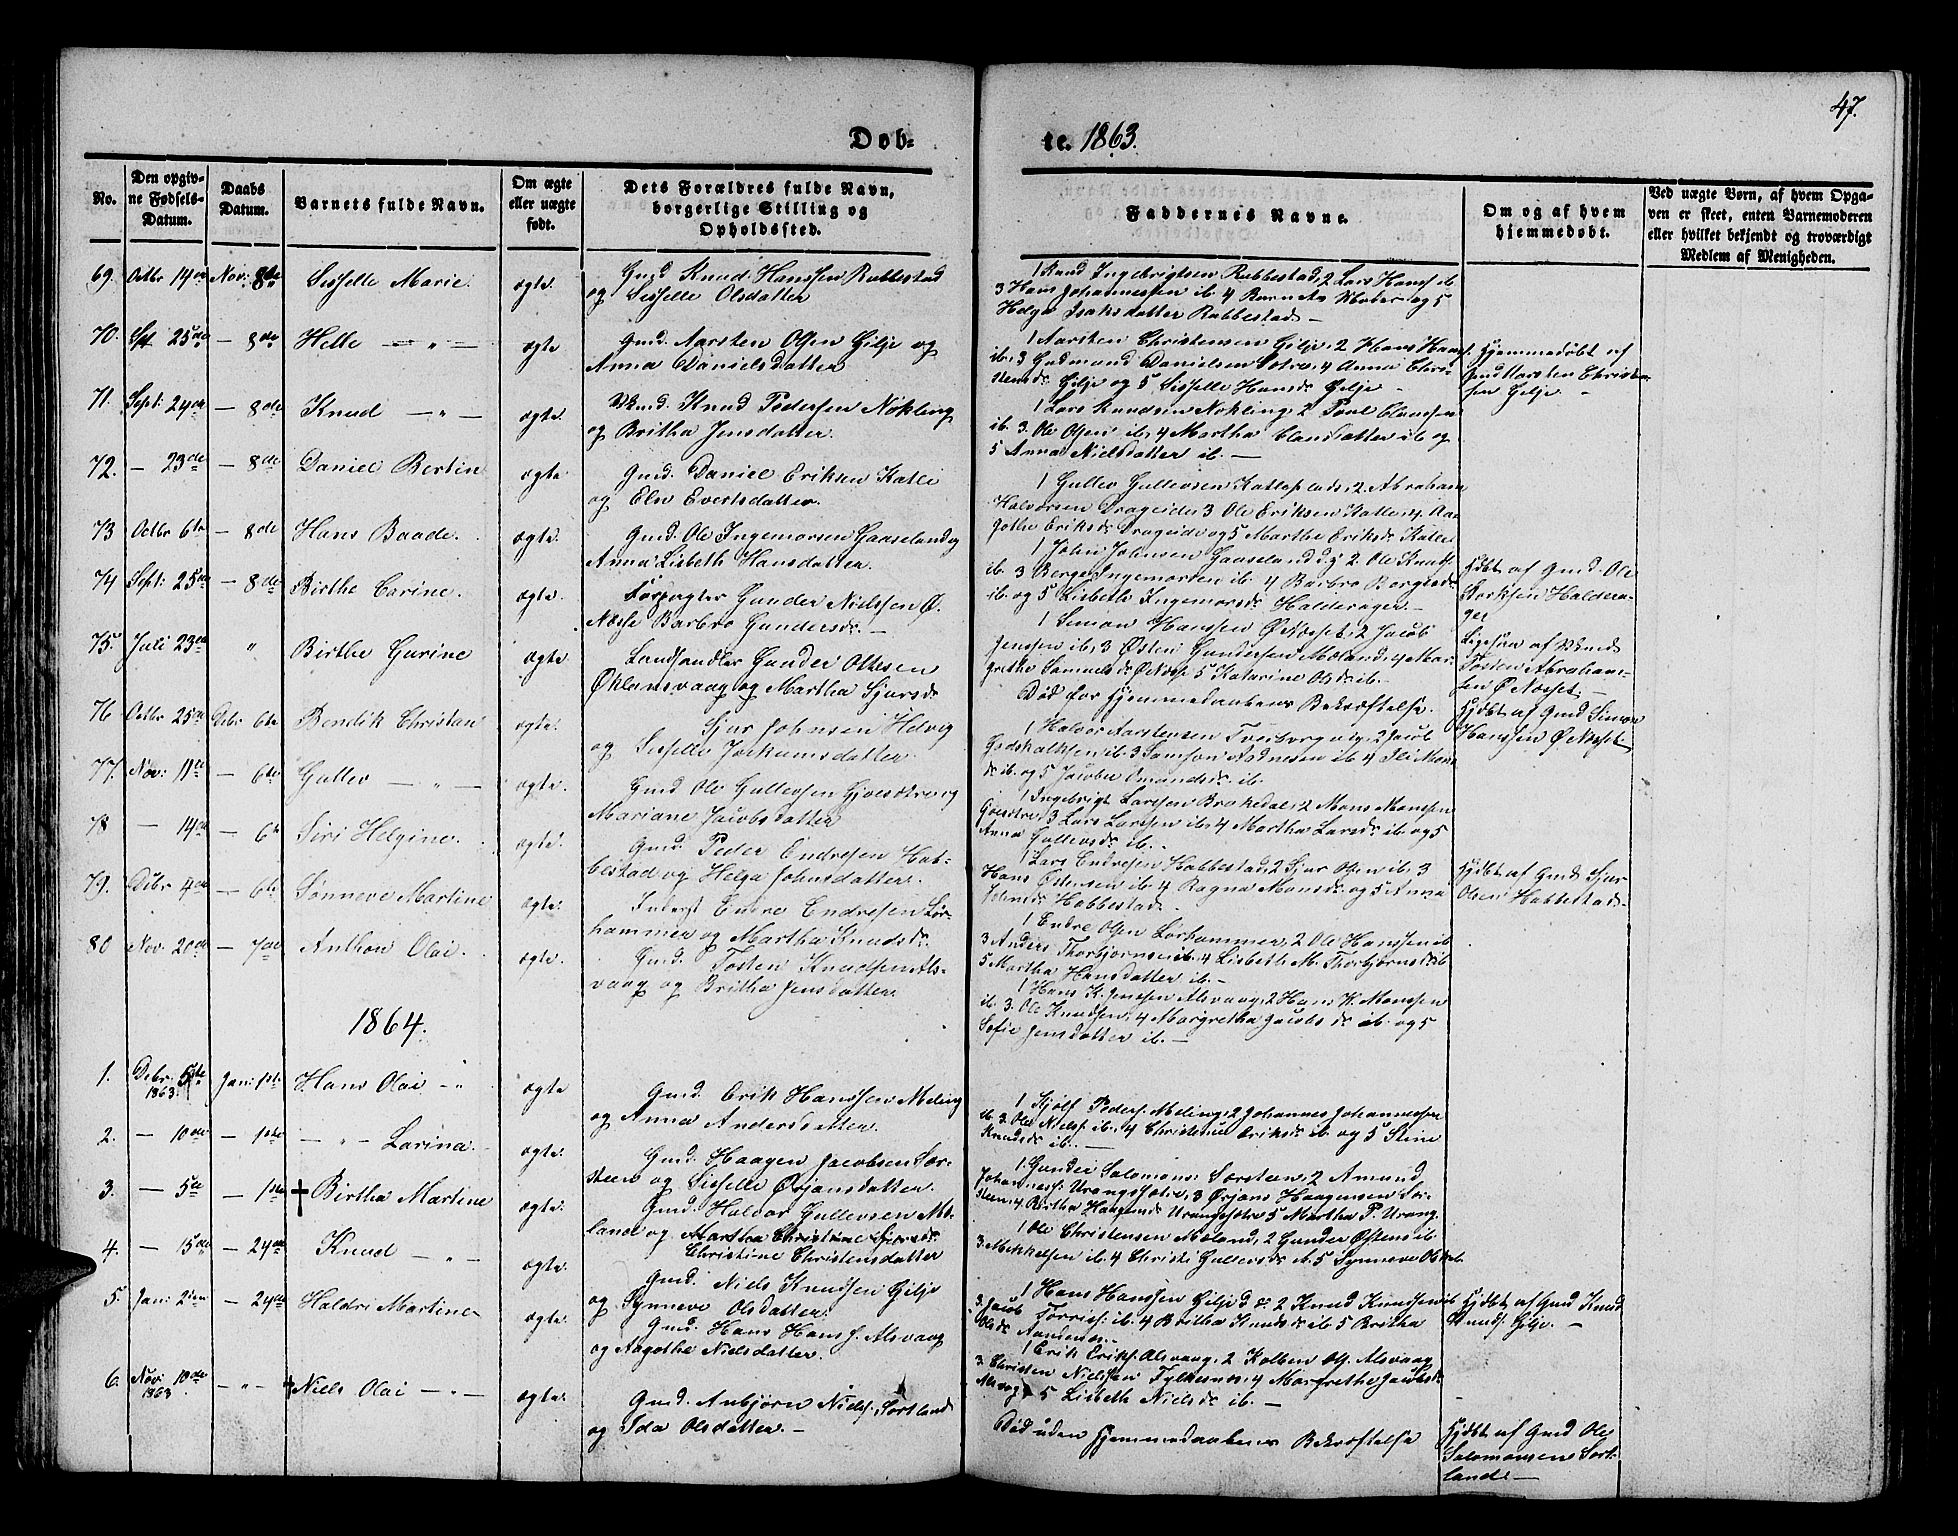 47.
Døb-
te. 1863.
No.
Den opgiv-
ne Fødsels-
Datum.
Daabs
Datum.
Barnets fulde Navn.
Om ægte
eller uægte
født.
Dets Forældres fulde Navn,
borgerlige Stilling og
Opholdssted.
Faddernes Navne.
Om og af hvem
hjemmedøbt.
Ved uægte Børn, af hvem Opga-
ven er skeet, enten Barnemoderen
eller hvilket bekjendt og troværdigt
Medlem af Menigheden.
69. Octbr 14de Nov: 8de Sisselle Marie. ægte.
Gmd Knud Hanssen Rubbestad
og Sisselle Olsdatter
1 Knud Ingebrigtsen Rubbestad, 2 Lars Hanss ib.
3 Hans Johannessen ib. 4 Barnets Moder og 5
Helga Isaksdatter Rubbestad. —
70. Spt 25de — 8de Helle — " — ægte
Gmd. Aarsten Olsen Gilje og
Anna Danielsdatter
1 Aarsten Christensen Gilje, 2 Hans Hans.
ib. 3 Gudmund Danielsen 4 Anna Chri-
stensd. Gilje og 5 Sisselle Hansd. Gilje —
Hjemmedøbt af
Gmd Karsten Christen-
sen Gilje. —
71. Sept: 24de — 8de Knud — " — ægte.
Knud Pedersen Nøkling
og Britha Jensdatter.
1 Lars Knudsen Nøkling, 2 Poul Clausen
ib. 3. Ole Olsen ib, 4 Martha Clausdatter ib og
5 Anna Nielsdatter ib. —
72. — 23de — 8de Daniel Bertin ægte
Gmd. Daniel Eriksen Katle
og Eln Evertsdatter.
1 Gullev Gullevsen 2 Abraham
Halvorsen Drageide, 3 Ole Eriksen Katle, 4. Aa-
gothe Eriksd. Drageide og 5 Marthe Eriksd. Katle
73 Octbr 6te — 8de Hans Baade. ægte.
Gmd. Ole Ingemorsen Gaaseland og
Anna Lisbeth Hansdatter.
1 John Johnsen Gaaseland 2. Ole Knuds.
ib. 3 Berge Ingemorsen ib. 4 Barbro Borgesd.
ib. og 5 Lisbeth Ingemorsd. Halderager. —
74 Sept: 25de — 8de Birthe Carine. ægte.
Forpagter Gunder Nielssen Ø.
Næsse Barbro Gundersd. —
1 Simon Hanssen Ø. Nesset, 2 Jacob
Jenssen ib, 3 Østen Gundersen Mæland, 4 Mar-
grethe Samuelsd. Ø. Næsse 5 Katarine Olsd. ib. —
Hjdbt af Gmd. Ole
Halderа-
ger
75. Juli 23de " Birthe Gurine ægte
Landhandler Gunder Ottesen
Øklansvaag og Martha Sjursd.
Død før Hjemmedaabens Bekræftelse.
Ligesaa af
Tosten Abraham-
sen Ø. Næsset. —
76 Octbr 25de Dcbr 6te Bendik Christian ægte.
Sjur Johnsen Helvig
og Sisselle Jochumsdatter.
1 Halvor Aarstensen 2 Jacob
ib. 3 Samson Asknesen ib. 4
d. ib. og 5 Jacobe Omundsd. ib.
Hjdbt af Gmd Simon
Hanssen Ø. Næsset.
77. Nov: 11te — 6te Gullev — " — ægte.
Gmd Ole Gullevsen og
Mariane Jacobsdatter
1 Ingebrigt Larsen Brakedal, 2 Mons Monssen
3 Lars Larssen ib, 4 Martha Larsd. ib. og 5
Anna Gullevsd. ib. —
78 — 14de — 6te Siri Helgine. ægte.
Gmd. Peder Endresen Hab-
bestad og Helga Johnsdatter.
1 Lars Endresen Habbestad, 2 Sjur Olsen ib. 3
Hans Østensen ib. 4 Ragna Monsd. og 5 Anna
Johnsd. Habbestad.
Hjdbt af Gmd Sjur
Olsen Habbestad. —
79. Dcbr 4de — 6te Sønneve Martine ægte.
Inderst Endre Endresen Lør-
hammer og Martha Knudsd.
1. Endre Olsen Lørhammer, 2 Ole Hanssen ib
3 Anders Thorbjørnsen ib. 4 Lisbeth M. Thorbjørnsd. ib
5 Martha Hansdatter ib. —
80 Nov. 20de — 7de Anthon Olai. ægte.
Gmd. Tosten Knudsen Als-
vaag og Britha Jensdatter.
1 Hans K. Jenssen Alsvaag, 2 Hans K. Monssen
ib. 3. Ole Knudsen, 4 Margretha Jacobsd. ib. og 5
Sofie Jensdatter ib. —
1864.
1. Dcbr. 5te Jan: 1ste Hans Olai — " ægte
1863.
Gmd. Erik Hanssen Meling
og Anna Andersdatter.
1 Kjølf Peders. Meling, 2 Johannes Johannessen
ib. 3. Ole Niels. ib. 4 Christense Eriksd. ib. og 5 Stine
Knudsd. ib. —
2. — 10de — 1ste — " — Larina. ægte.
Gmd. Haagen Jacobsen Sør-
steen og Sisselle Ørjansdatter.
1. Gunder Salomons. Sørsteen, 2 Amund
Johanness. Urangsætre, 3 Ørjans Haagensen Sør-
steen, 4 Birtha Haagensd. Urangsætre 5 Martha P. Urang.
3. — 5te — 1ste † Birtha Martine ægte.
Gmd. Halvor Gullevsen Mæ-
land og Martha Christine Sjursd.
Christine Christensdatter
1 Ole Christensen Mæland, 2 Gunder Østens. ib
3 Mikkelsen ib. 4 Christi Gullevsd. 5. Synneve
4. — 15de — 24de Knud — " — ægte.
Gmd. Niels Knudsen Gilje
og Synneve Olsdatter.
1 Hans Hanssen Gilje 2 Knud Knudsen ib
3. Jacob Torris. ib. 4 Britha Knudsd. ib. 5 Britha
Olsd.
Hjdbt af Gmd Knud
Knuds. Gilje. —
5. Jan: 2den — 24de Haldri Martine ægte.
Gmd. Hans Hans. Alsvaag
og Aagothe Nielsdatter.
1 Erik Eriks. Alsvaag, 2 Kolben Ols. Alsvaag
3. Christen Nielssen Fylkesnes, 4 Margrethe Jacobsd.
Alsvaag 5 Lisbeth Nielsd. ib. —
6. Nov: 10de — " — † Niels Olai — " — ægte.
1863
Gmd. Anbjørn Niels. Sortland
og Ida Olsdatter. —
Død uden Hjemmedaabens Bekræftelse
Hjdbt af Gmd Ole
Salomonsen Sort-
land. —